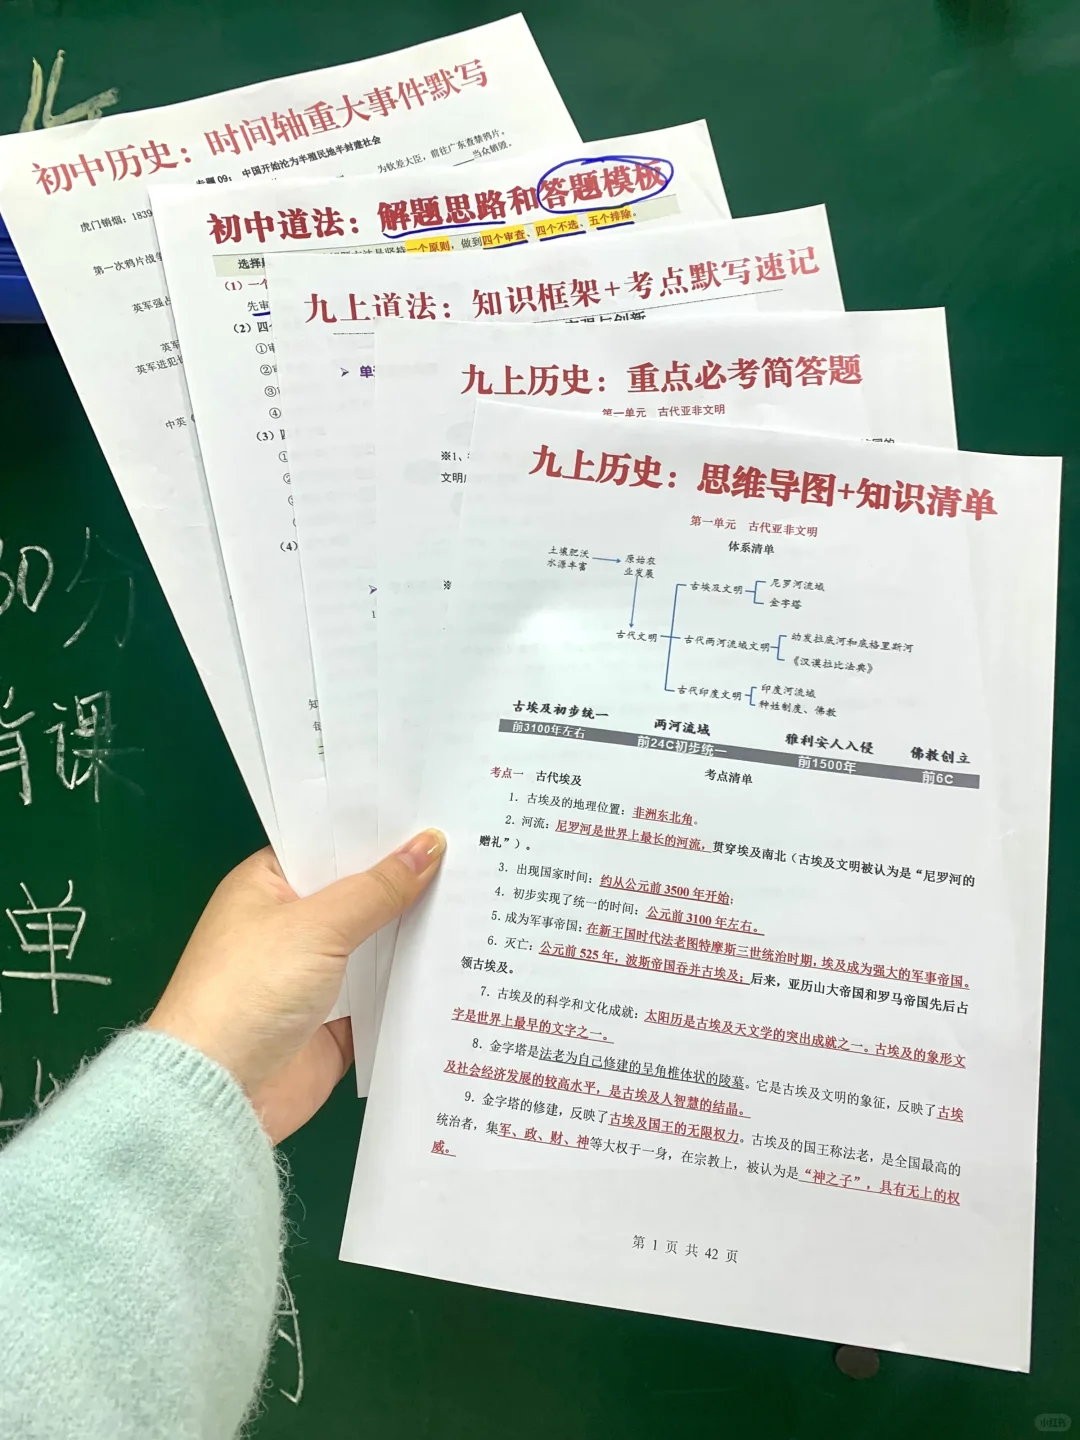 初中历史：时间轴重大事件默写
专题09： 中国开始沦为半殖民地半封建社会
虎门销烟：1839
为钦差大臣，前往广东查禁鸦片。
当众销毁。
第一次鸦片战争
英军强占
英军
英军进犯长
中英
初中道法：解题思路和答题模板
选择题
坚持一个原则，做到四个审查、四个不选、五个排除。
（1）一个
先审
（2）四个
①审
②
③
④
（3）
①
（4）
九上道法：知识框架+考点默写速记
富强与创新
➤ 单
九上历史：重点必考简答题
第一单元 古代亚非文明
※1、
文明
※
九上历史：思维导图+知识清单
第一单元 古代亚非文明
体系清单
土壤肥沃
水源丰富
原始农
业发展
古代文明
古埃及文明
尼罗河流域
金字塔
古代两河流域文明
幼发拉底河和底格里斯河
《汉谟拉比法典》
古代印度文明
印度河流域
种姓制度、佛教
古埃及初步统一 两河流域 雅利安人入侵 佛教创立
前3100年左右 前24C初步统一 前1500年 前6C
考点清单
考点一 古代埃及
1．古埃及的地理位置：非洲东北角。
2．河流：尼罗河是世界上最长的河流，贯穿埃及南北（古埃及文明被认为是“尼罗河的
赠礼”）。
3．出现国家时间：约从公元前 3500 年开始;
4．初步实现了统一的时间：公元前 3100 年左右。
5．成为军事帝国：在新王国时代法老图特摩斯三世统治时期，埃及成为强大的军事帝国。
6．灭亡：公元前 525 年，波斯帝国吞并古埃及；后来，亚历山大帝国和罗马帝国先后占
领古埃及。
7．古埃及的科学和文化成就：太阳历是古埃及天文学的突出成就之一。古埃及的象形文
字是世界上最早的文字之一。
8．金字塔是法老为自己修建的呈角椎体状的陵墓。它是古埃及文明的象征，反映了古埃
及社会经济发展的较高水平，是古埃及人智慧的结晶。
9．金字塔的修建，反映了古埃及国王的无限权力。古埃及的国王称法老，是全国最高的
统治者，集军、政、财、神等大权于一身，在宗教上，被认为是“神之子”，具有无上的权
威。
第 1 页 共 42 页
30分
背课
单
小红书